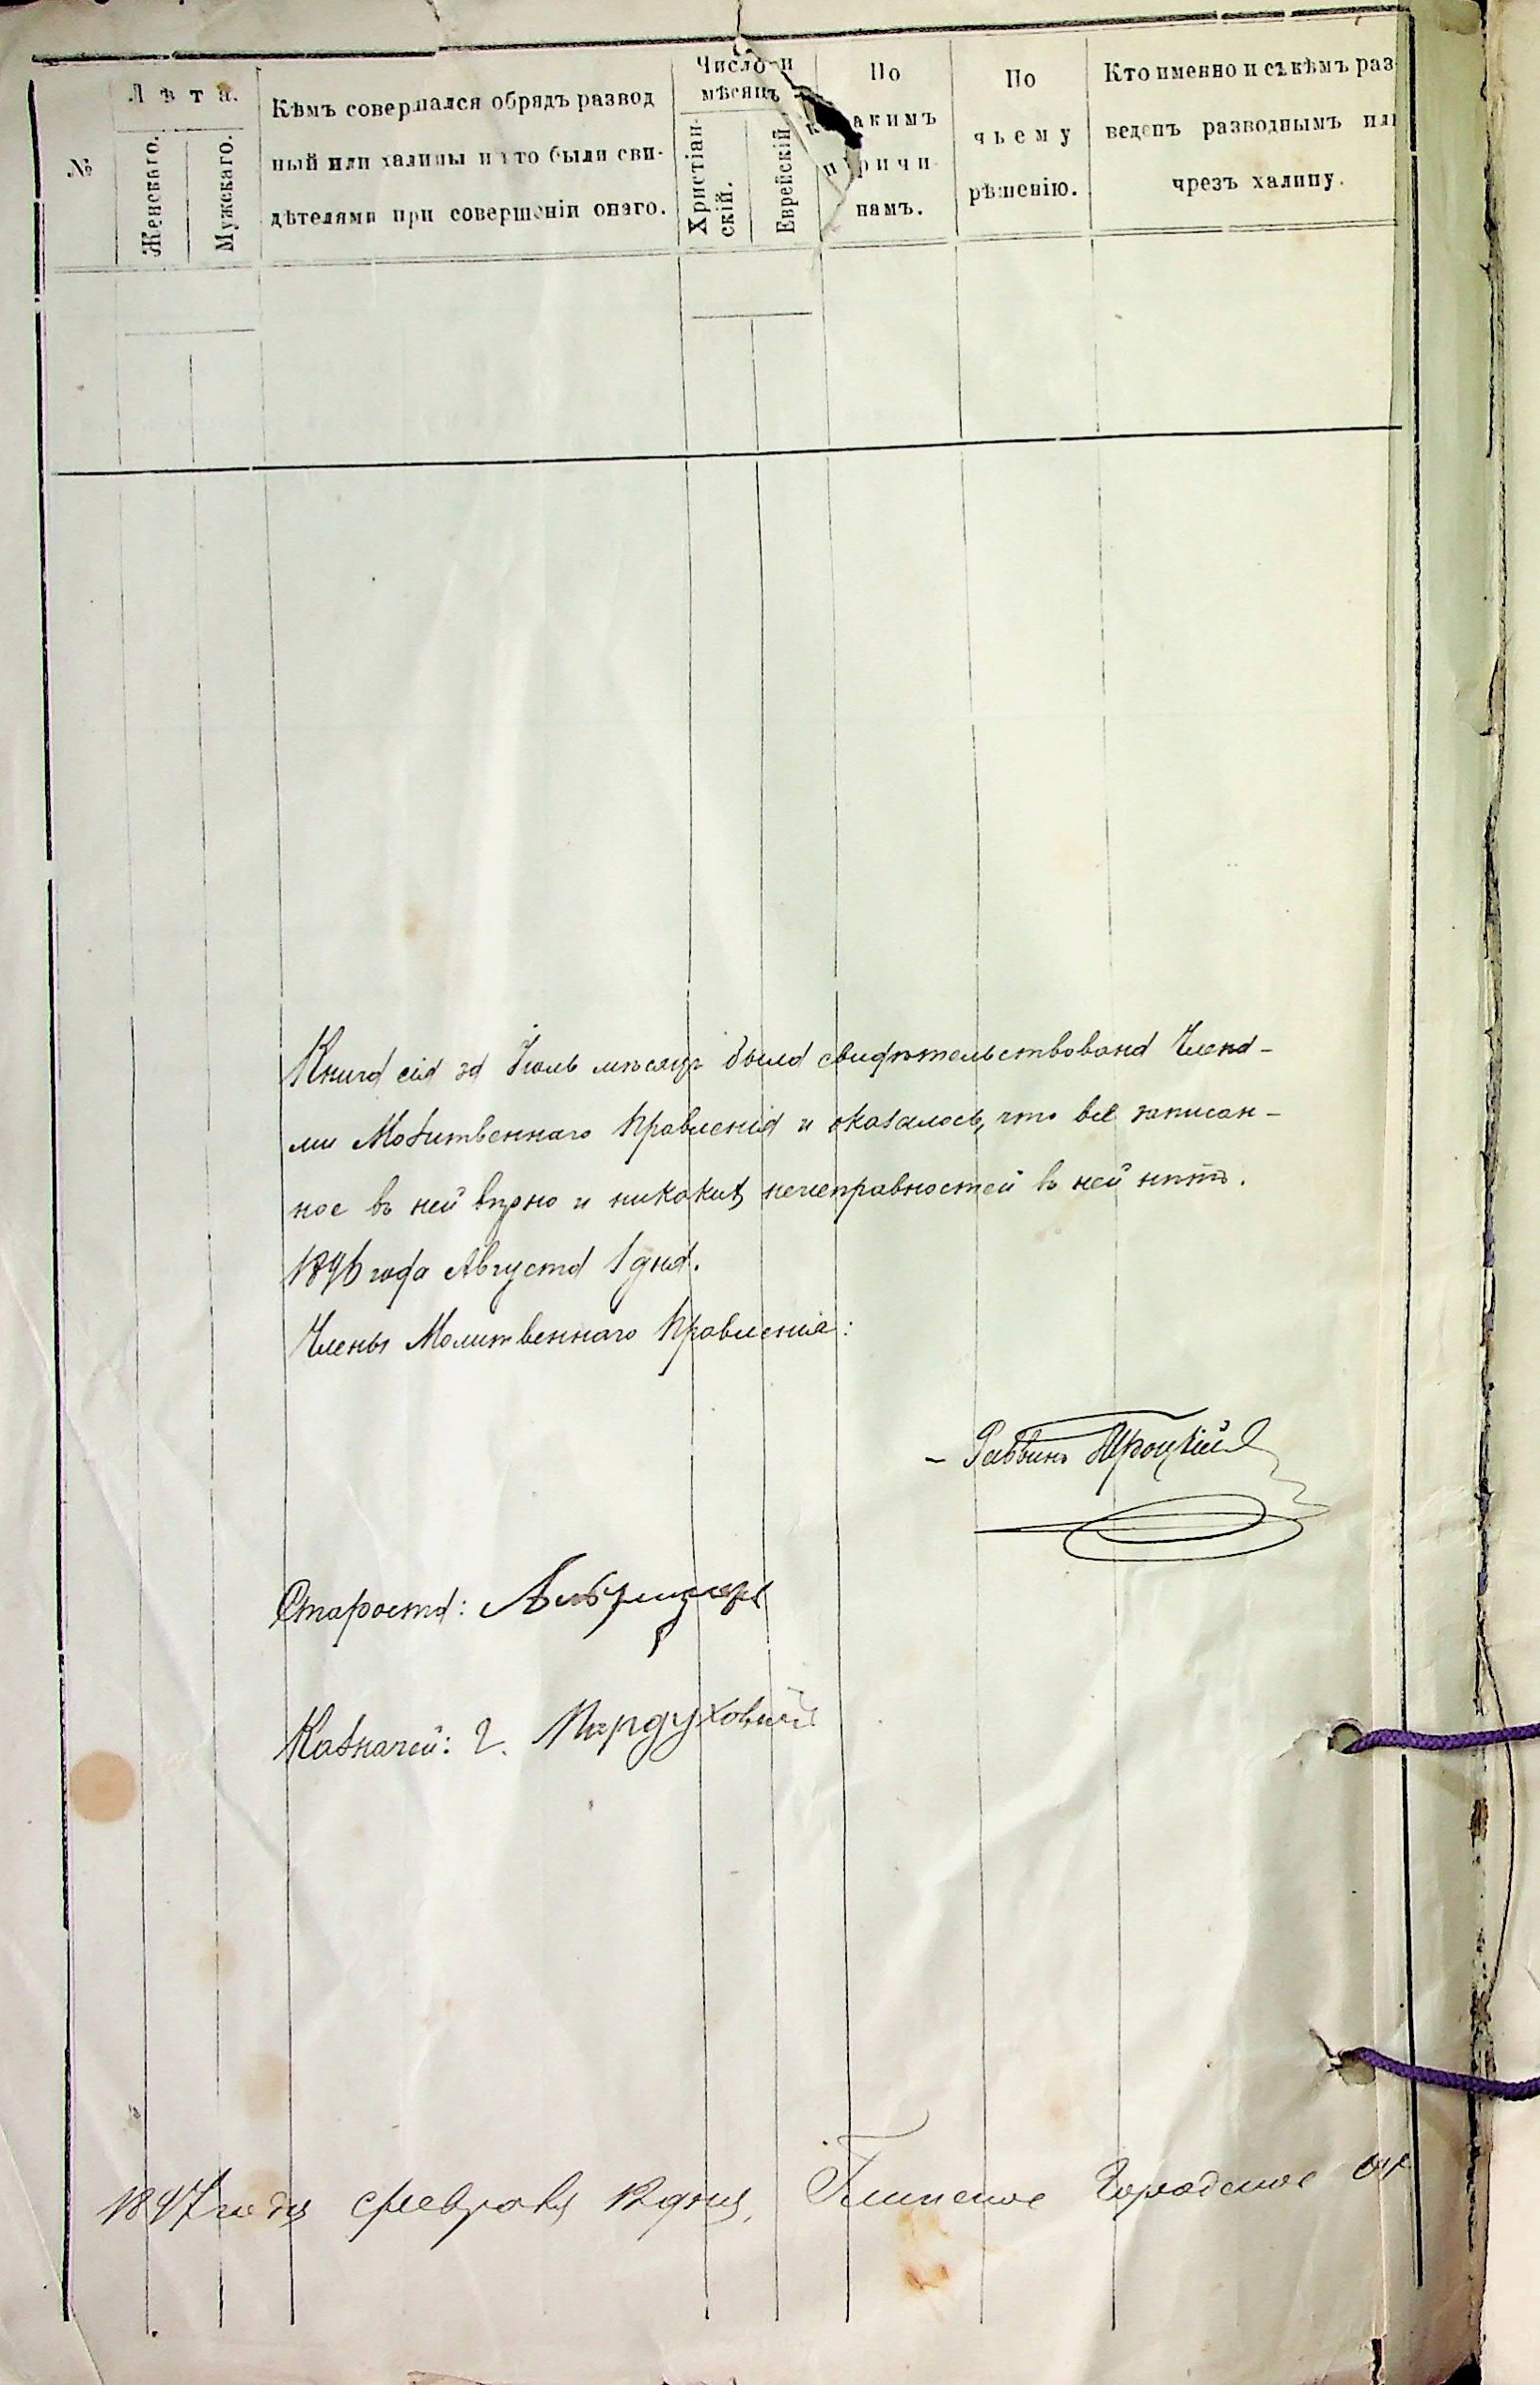 №
Лѣта.
Женскаго.
Мужскаго.
Кѣмъ совершался обрядъ развод
ный или халицы и кто были сви-
дѣтелями при совершеніи онаго.
Число и
мѣсяцъ
Христіан-
скій.
Еврейскій
По
какимъ
причи-
намъ.
По
чьему
рѣшенію.
Кто именно и съ кѣмъ раз
веденъ разводнымъ или
чрезъ халицу.
Книга сія за Іюль мѣсяцъ была свидѣтельствована Члена-
ми Молитвеннаго Правленія и оказалось, что все записан-
ное въ ней вѣрно и никакихъ неисправностей въ ней нѣтъ.
1896 года Августа 1 дня.
Члены Молитвеннаго Правленія:
- Раввинъ
Староста:
Казначей: Г. Мордуховичъ
1897 года февраля 12 дня, Городское